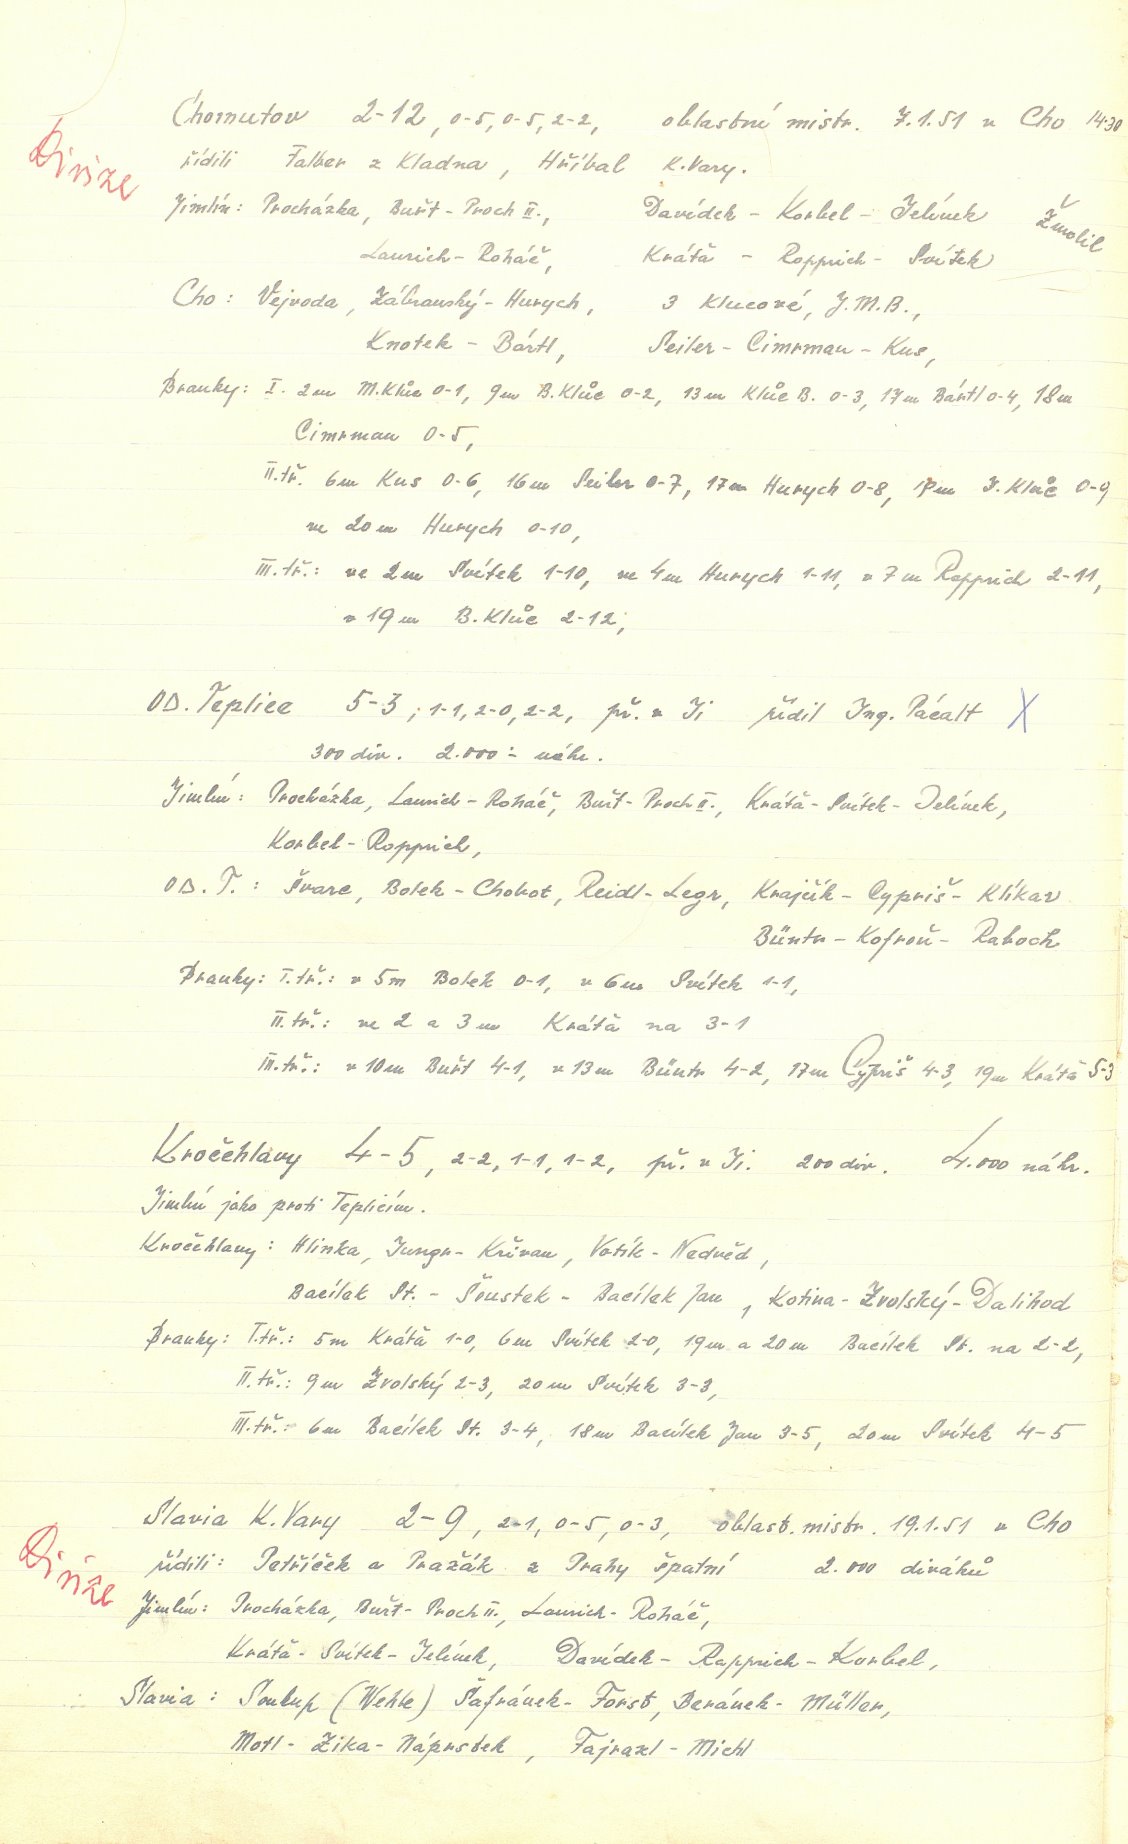 Chomutov 2-12, 0-5, 0-5, 2-2, oblastní mistr. 7.1.51 v Cho 14.30
Divize
řídili Falber z Kladna, Hříbal K.Vary.
Jimlín: Procházka, Buřt - Proch II., Davídek - Korbel - Jelínek Žmolil
Laurich - Roháč, Krátă - Rapprich - Svítek
Cho: Vejvoda, Zábranský - Hurych, 3 Klucové, J.M.B.,
Knotek - Bártl, Seiler - Cimrman - Kus,
Branky: I. 2m M.Klůc 0-1, 9m B.Klůc 0-2, 13m Klůc B. 0-3, 17m Bártl 0-4, 18m
Cimrman 0-5,
II.tř. 6m Kus 0-6, 16m Seiler 0-7, 17m Hurych 0-8, 17m J.Klůc 0-9
ve 20m Hurych 0-10,
III.tř.: ve 2m Svítek 1-10, ve 4m Hurych 1-11, v 7m Rapprich 2-11,
v 19m B.Klůc 2-12,
OD.Teplice 5-3, 1-1, 2-0, 2-2, př. v Ji řídil Ing. Pácalt X
300 div. 2.000 - náhr.
Jimlín: Procházka, Laurich - Roháč, Buřt - Proch II., Krátă - Svítek - Jelínek,
Korbel - Rapprich,
OD.T.: Švarc, Bolek - Chobot, Reidl - Legr, Krajčík - Cypriš - Klikar
Büntr - Kofroň - Raboch
Branky: I.tř.: v 5m Bolek 0-1, v 6m Svítek 1-1,
II.tř.: ve 2 a 3m Krátă na 3-1
III.tř.: v 10m Buřt 4-1, v 13m Büntr 4-2, 17m Cypriš 4-3, 19m Krátă 5-3
Kročehlavy 4-5, 2-2, 1-1, 1-2, př. v Ji. 200 div. 4.000 náhr.
Jimlín jako proti Teplicím.
Kročehlavy: Hlinka, Jungr - Křivan, Votík - Nedvěd,
Bacílek St. - Šoustek - Bacílek Jan, Kotina - Zvolský - Dalihod
Branky: I.tř.: 5m Krátă 1-0, 6m Svítek 2-0, 19m a 20m Bacílek St. na 2-2,
II.tř.: 9m Zvolský 2-3, 20m Svítek 3-3,
III.tř.: 6m Bacílek St. 3-4, 18m Bacílek Jan 3-5, 20m Svítek 4-5
Slavia K.Vary 2-9, 2-1, 0-5, 0-3, oblast. mistr. 19.1.51 v Cho
Divize
řídili: Petříček a Pražák z Prahy špatní 2.000 diváků
Jimlín: Procházka, Buřt - Proch II., Laurich - Roháč,
Krátă - Svítek - Jelínek, Davídek - Rapprich - Korbel,
Slavia: Soukup (Wehle) Šafránek - Forst, Beránek - Müller,
Motl - Zika - Náprstek, Fajraxl - Michl